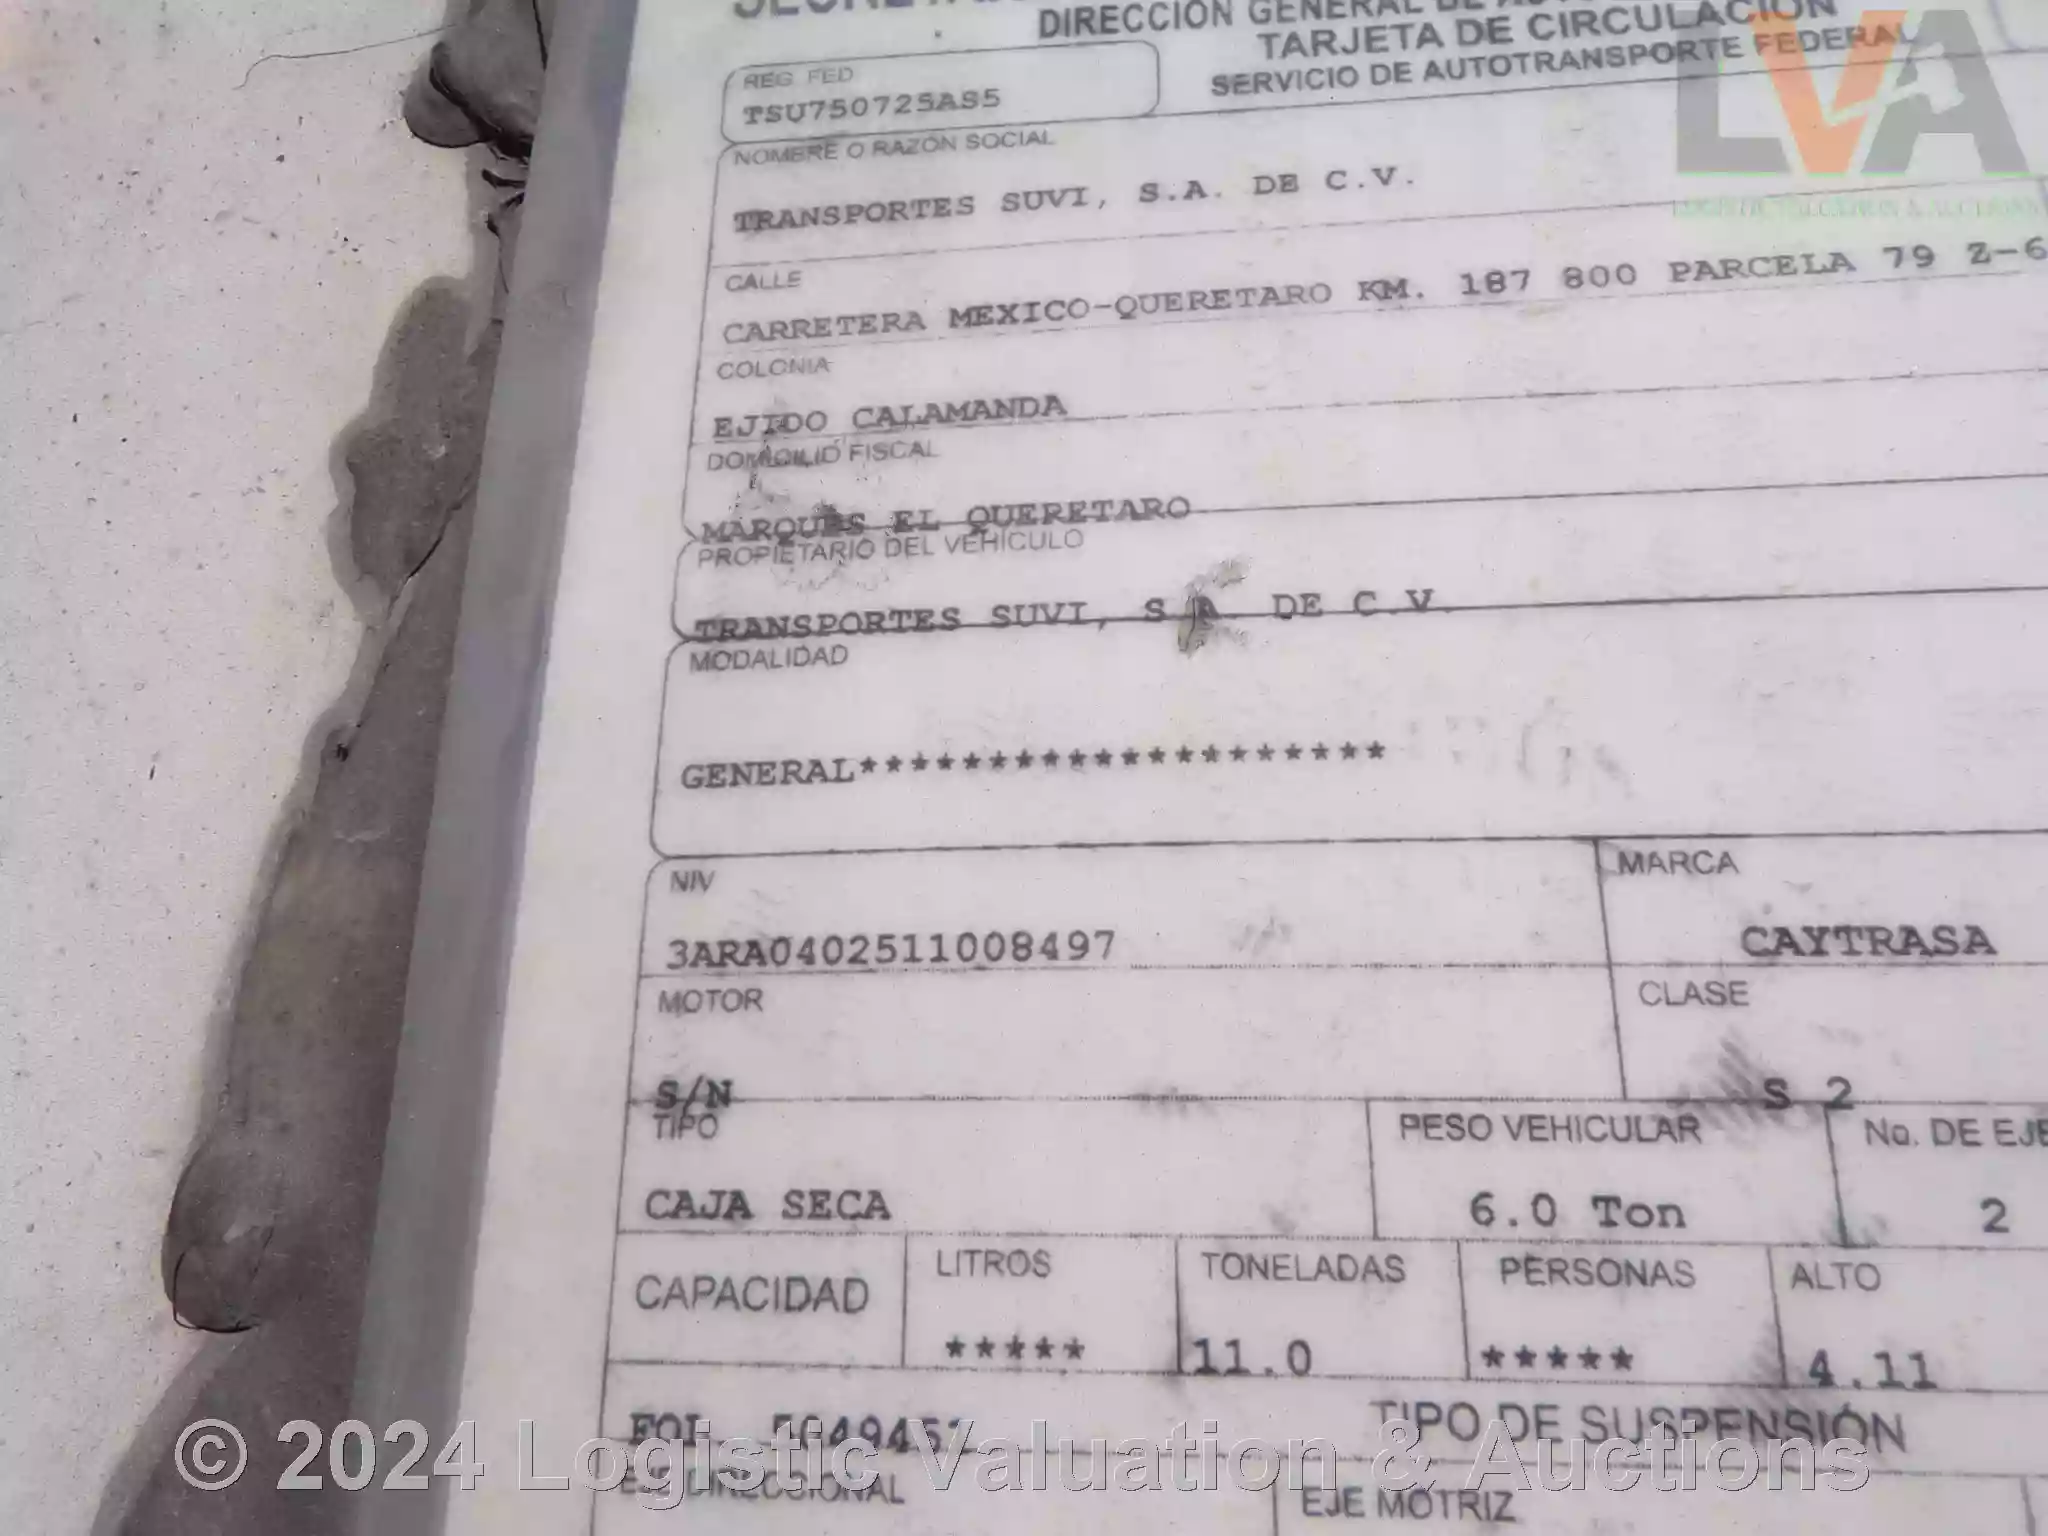 DIRECCIÓN GENERAL DE
TARJETA DE CIRCULACIÓN
SERVICIO DE AUTOTRANSPORTE FEDERAL
LVA
REG FED
TSU750725AS5
NOMBRE O RAZÓN SOCIAL
TRANSPORTES SUVI, S.A. DE C.V.
CALLE
CARRETERA MEXICO-QUERETARO KM. 187 800 PARCELA 79 Z-6
COLONIA
EJIDO CALAMANDA
DOMICILIO FISCAL
MARQUES EL QUERETARO
PROPIETARIO DEL VEHÍCULO
TRANSPORTES SUVI, S A DE C.V.
MODALIDAD
GENERAL********************
NIV MARCA
3ARA0402511008497 CAYTRASA
MOTOR CLASE
S/N S 2
TIPO PESO VEHICULAR No. DE EJE
CAJA SECA 6.0 Ton 2
CAPACIDAD LITROS TONELADAS PERSONAS ALTO
***** 11.0 ***** 4.11
FOL TIPO DE SUSPENSIÓN
© 2024 Logistic Valuation & Auctions
EJE DIRECCIONAL EJE MOTRIZ